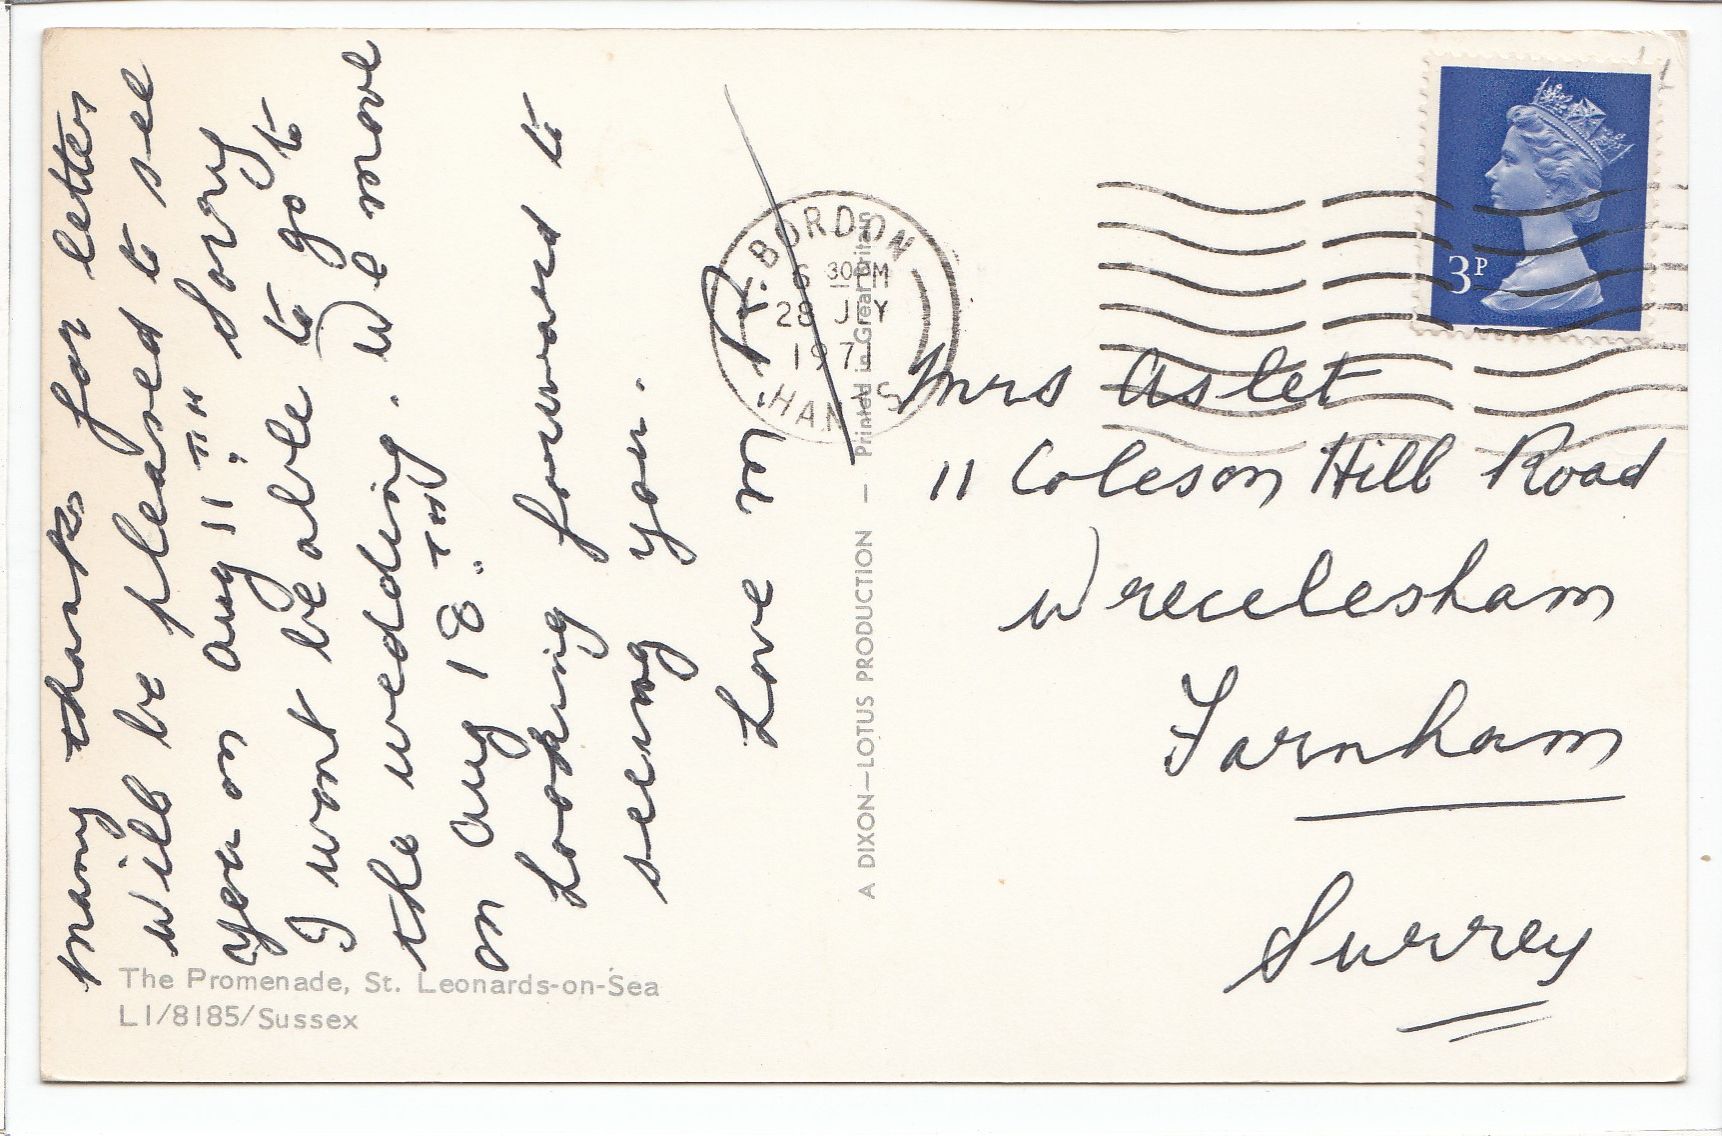 many thanks for letter
will be pleased to see
you on aug 11 TH sorry
I wont be able to go to
the wedding. We move
on aug 18 TH
Looking forward to
seeing you.
Love m
BORDON
6 30PM
28 JLY
197
HANTS
A DIXON—LOTUS PRODUCTION — Printed in Great Britain
3P
Mrs Aslet
11 Coleson Hill Road
Wrecclesham
Farnham
Surrey
The Promenade, St. Leonards-on-Sea
L1/8185/Sussex